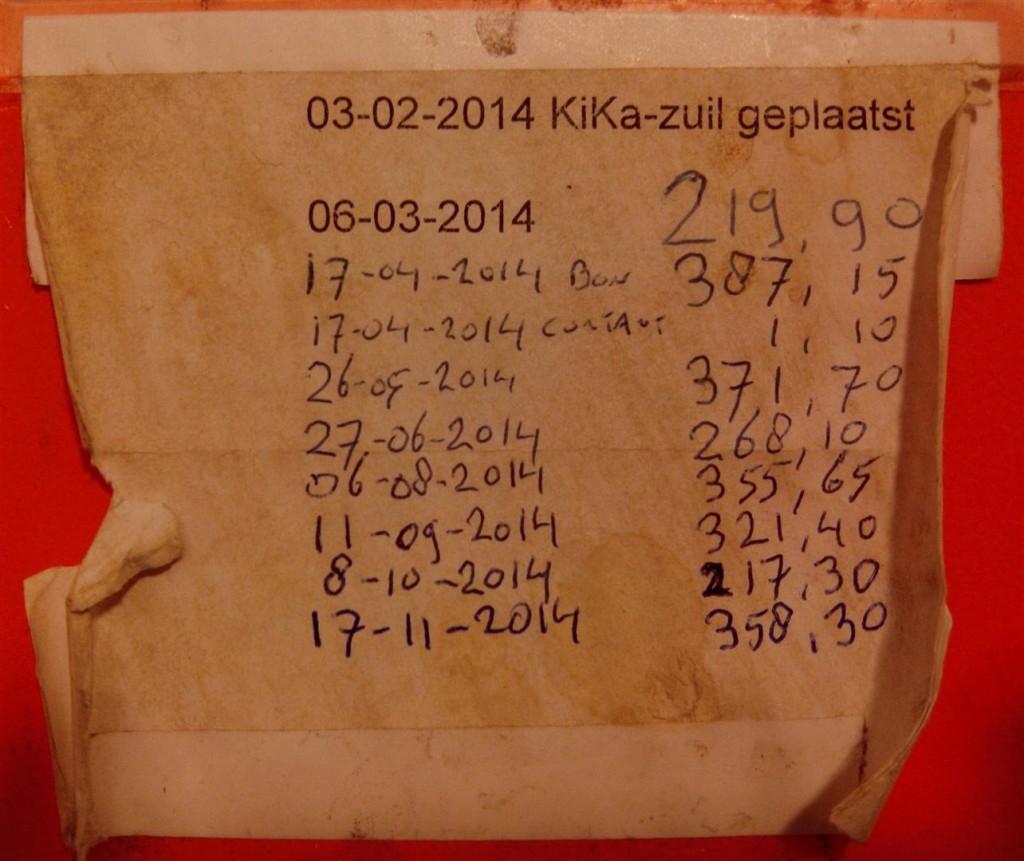 03-02-2014 KiKa-zuil geplaatst
06-03-2014 219,90
17-04-2014 Bon 387,15
17-04-2014 CONTANT 1,10
26-05-2014 371,70
27-06-2014 268,10
06-08-2014 355,65
11-09-2014 321,40
8-10-2014 217,30
17-11-2014 358,30